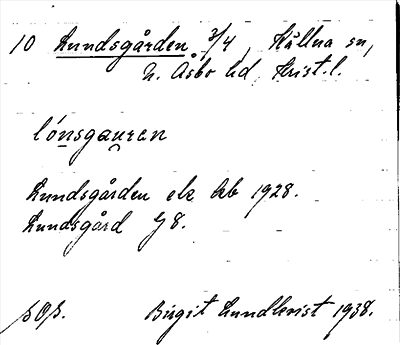 10 Lundsgården 3/4, Källna sn,
N. Åsbo hd, Krist. l.
lónsgauren
Lundsgården ek 1928.
Lundsgård G8.
Birgit Lundkvist 1938.